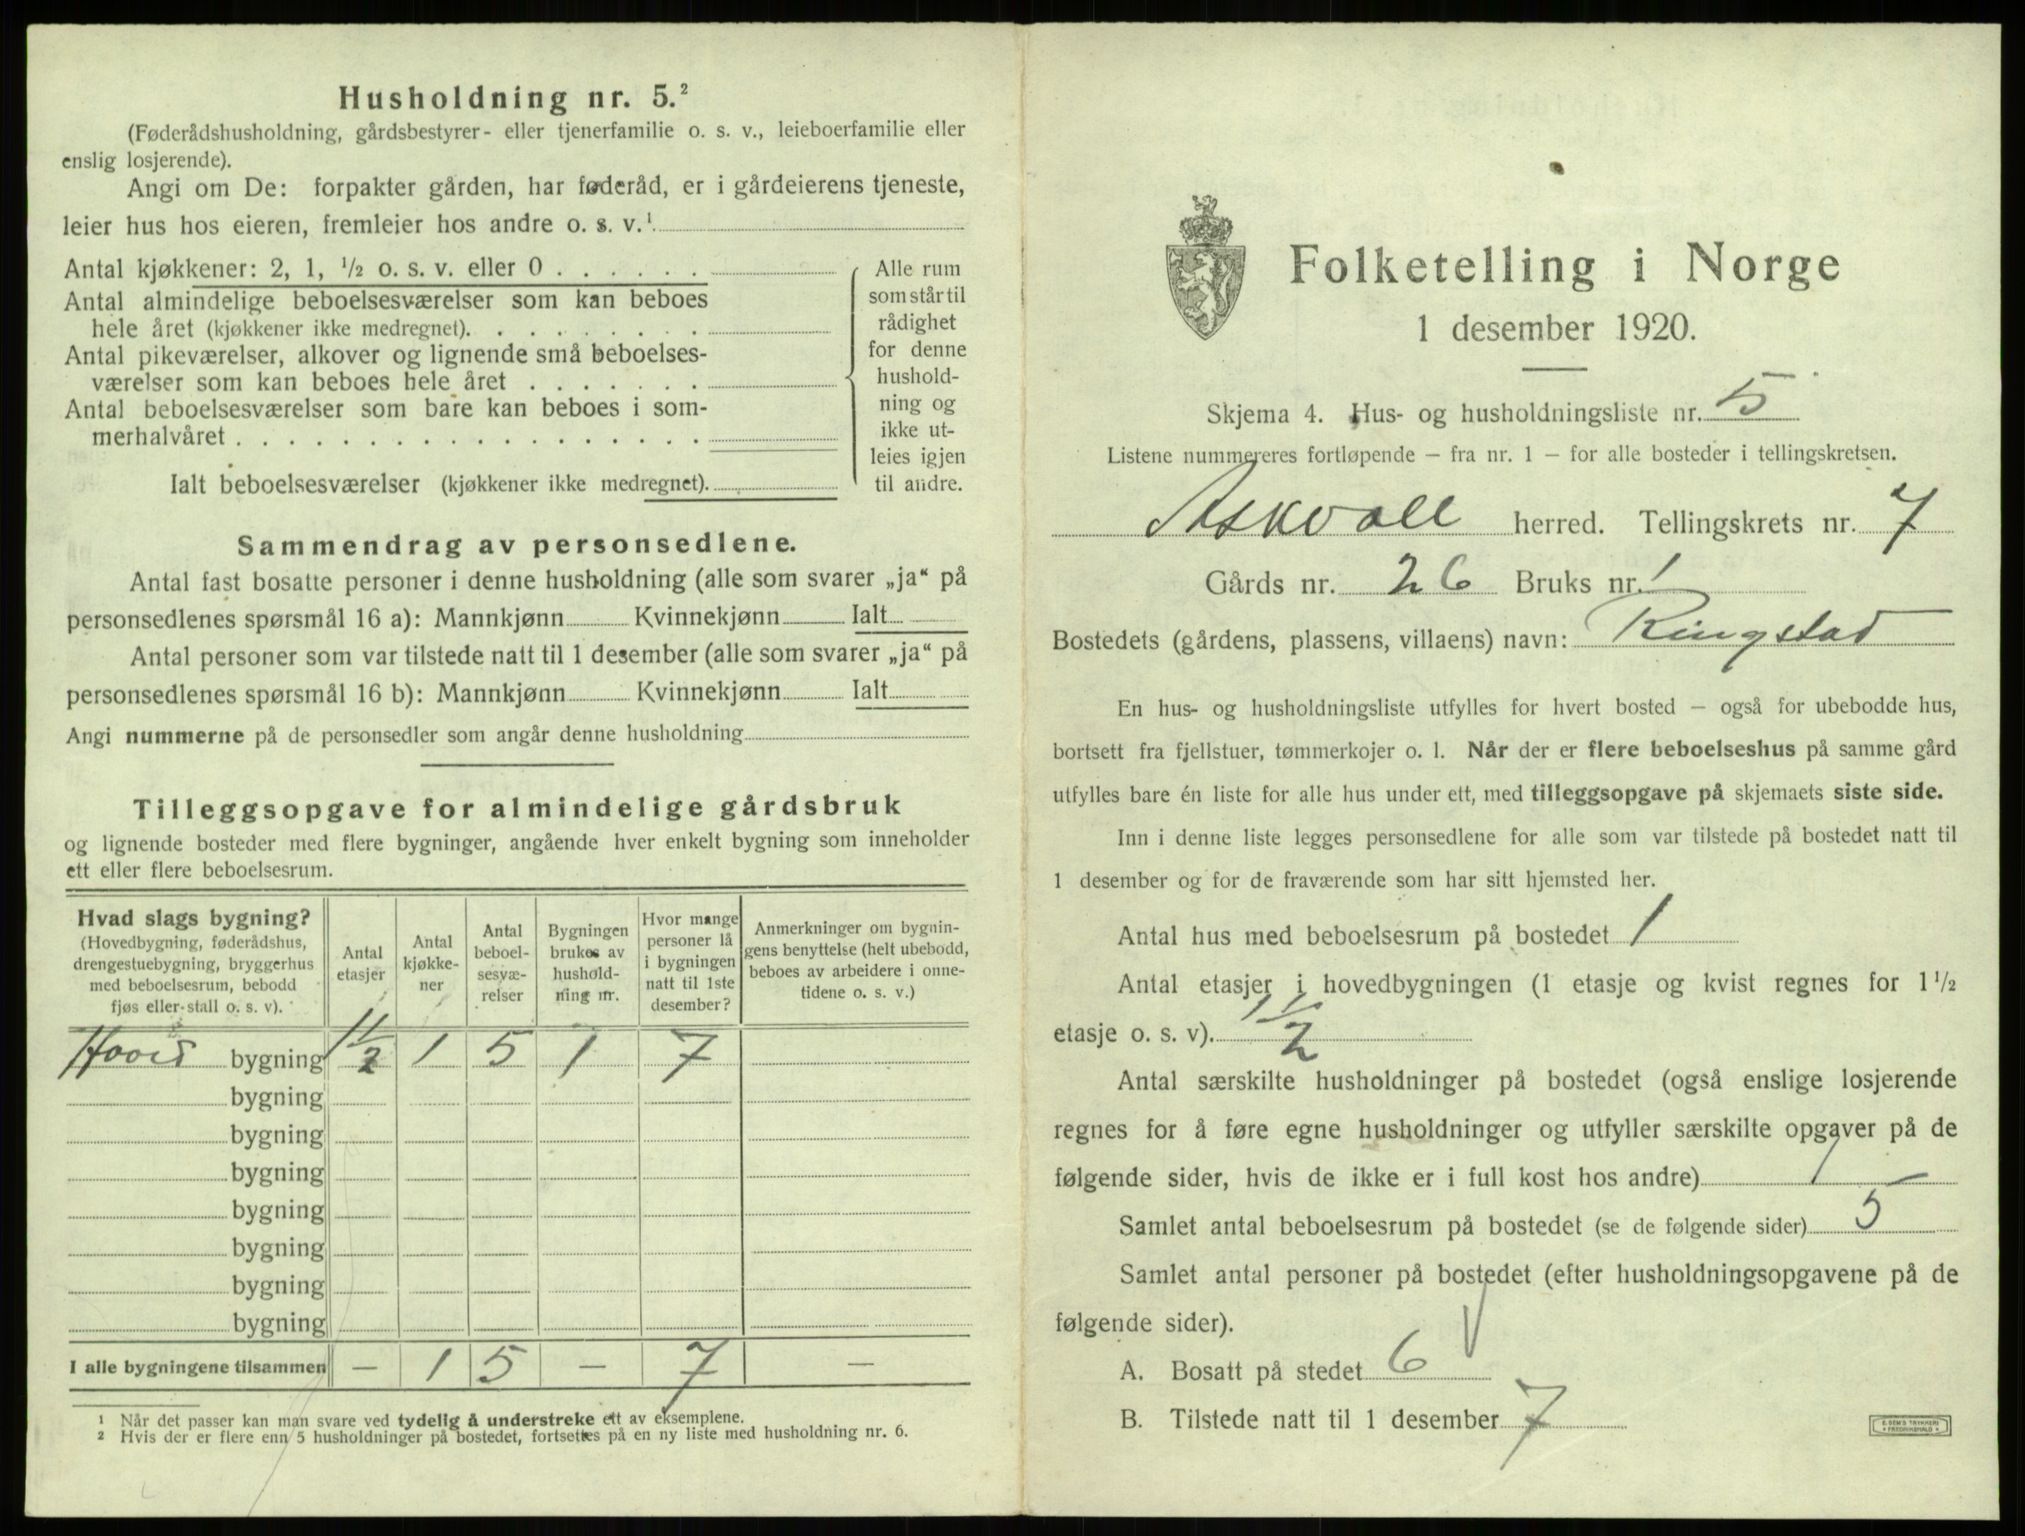 Husholdning nr. 5.²
(Føderådshusholdning, gårdsbestyrer- eller tjenerfamilie o. s. v., leieboerfamilie eller
enslig losjerende).
Angi om De: forpakter gården, har føderåd, er i gårdeierens tjeneste,
leier hus hos eieren, fremleier hos andre o. s. v.¹
Antal kjøkkener: 2, 1, ½ o. s. v. eller 0 . . . . . .
Antal almindelige beboelsesværelser som kan beboes
hele året (kjøkkener ikke medregnet). . . . . . . . .
Antal pikeværelser, alkover og lignende små beboelses-
værelser som kan beboes hele året . . . . . . .
Antal beboelsesværelser som bare kan beboes i som-
merhalvåret . . . . . . . . . . . . . . . . . .
Ialt beboelsesværelser (kjøkkener ikke medregnet).
Alle rum
som står til
rådighet
for denne
hushold-
ning og
ikke ut-
leies igjen
til andre.
Sammendrag av personsedlene.
Antal fast bosatte personer i denne husholdning (alle som svarer „ja“ på
personsedlenes spørsmål 16 a): Mannkjønn Kvinnekjønn Ialt
Antal personer som var tilstede natt til 1 desember (alle som svarer „ja“ på
personsedlenes spørsmål 16 b): Mannkjønn Kvinnekjønn Ialt
Angi nummerne på de personsedler som angår denne husholdning
Tilleggsopgave for almindelige gårdsbruk
og lignende bosteder med flere bygninger, angående hver enkelt bygning som inneholder
ett eller flere beboelsesrum.
Hvad slags bygning?
(Hovedbygning, føderådshus,
drengestuebygning, bryggerhus
med beboelsesrum, bebodd
fjøs eller stall o. s. v).
Antal
etasjer
Antal
kjøkke-
ner
Antal
beboel-
sesvæ-
relser
Bygningen
brukes av
hushold-
ning nr.
Hvor mange
personer lå
i bygningen
natt til 1ste
desember?
Anmerkninger om bygnin-
gens benyttelse (helt ubebodd,
beboes av arbeidere i onne-
tidene o. s. v.)
Hoved bygning 1½ 1 5 1 7
bygning
bygning
bygning
bygning
bygning
bygning
bygning
I alle bygningene tilsammen — 1 5 — 7 —
¹ Når det passer kan man svare ved tydelig å understreke ett av eksemplene.
² Hvis der er flere enn 5 husholdninger på bostedet, fortsettes på en ny liste med husholdning nr. 6.
Folketelling i Norge
1 desember 1920.
Skjema 4. Hus- og husholdningsliste nr. 5
Listene nummereres fortløpende — fra nr. 1 — for alle bosteder i tellingskretsen.
Askvoll herred. Tellingskrets nr. 7
Gårds nr. 26 Bruks nr. 1
Bostedets (gårdens, plassens, villaens) navn: Ringstad
En hus- og husholdningsliste utfylles for hvert bosted — også for ubebodde hus,
bortsett fra fjellstuer, tømmerkojer o. l. Når der er flere beboelseshus på samme gård
utfylles bare én liste for alle hus under ett, med tilleggsopgave på skjemaets siste side.
Inn i denne liste legges personsedlene for alle som var tilstede på bostedet natt til
1 desember og for de fraværende som har sitt hjemsted her.
Antal hus med beboelsesrum på bostedet 1
Antal etasjer i hovedbygningen (1 etasje og kvist regnes for 1½
etasje o. s. v). 1½
Antal særskilte husholdninger på bostedet (også enslige losjerende
regnes for å føre egne husholdninger og utfyller særskilte opgaver på de
følgende sider, hvis de ikke er i full kost hos andre) 1
Samlet antal beboelsesrum på bostedet (se de følgende sider) 5
Samlet antal personer på bostedet (efter husholdningsopgavene på de
følgende sider).
A. Bosatt på stedet 6
B. Tilstede natt til 1 desember 7